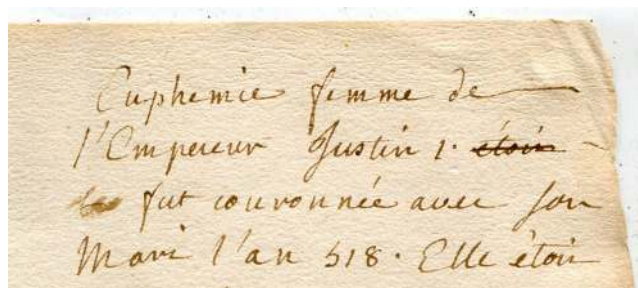 Euphemie femme de
l'Empereur Justin 1. étoit
fut couronnée avec son
Mari l'an 518. Elle étoit